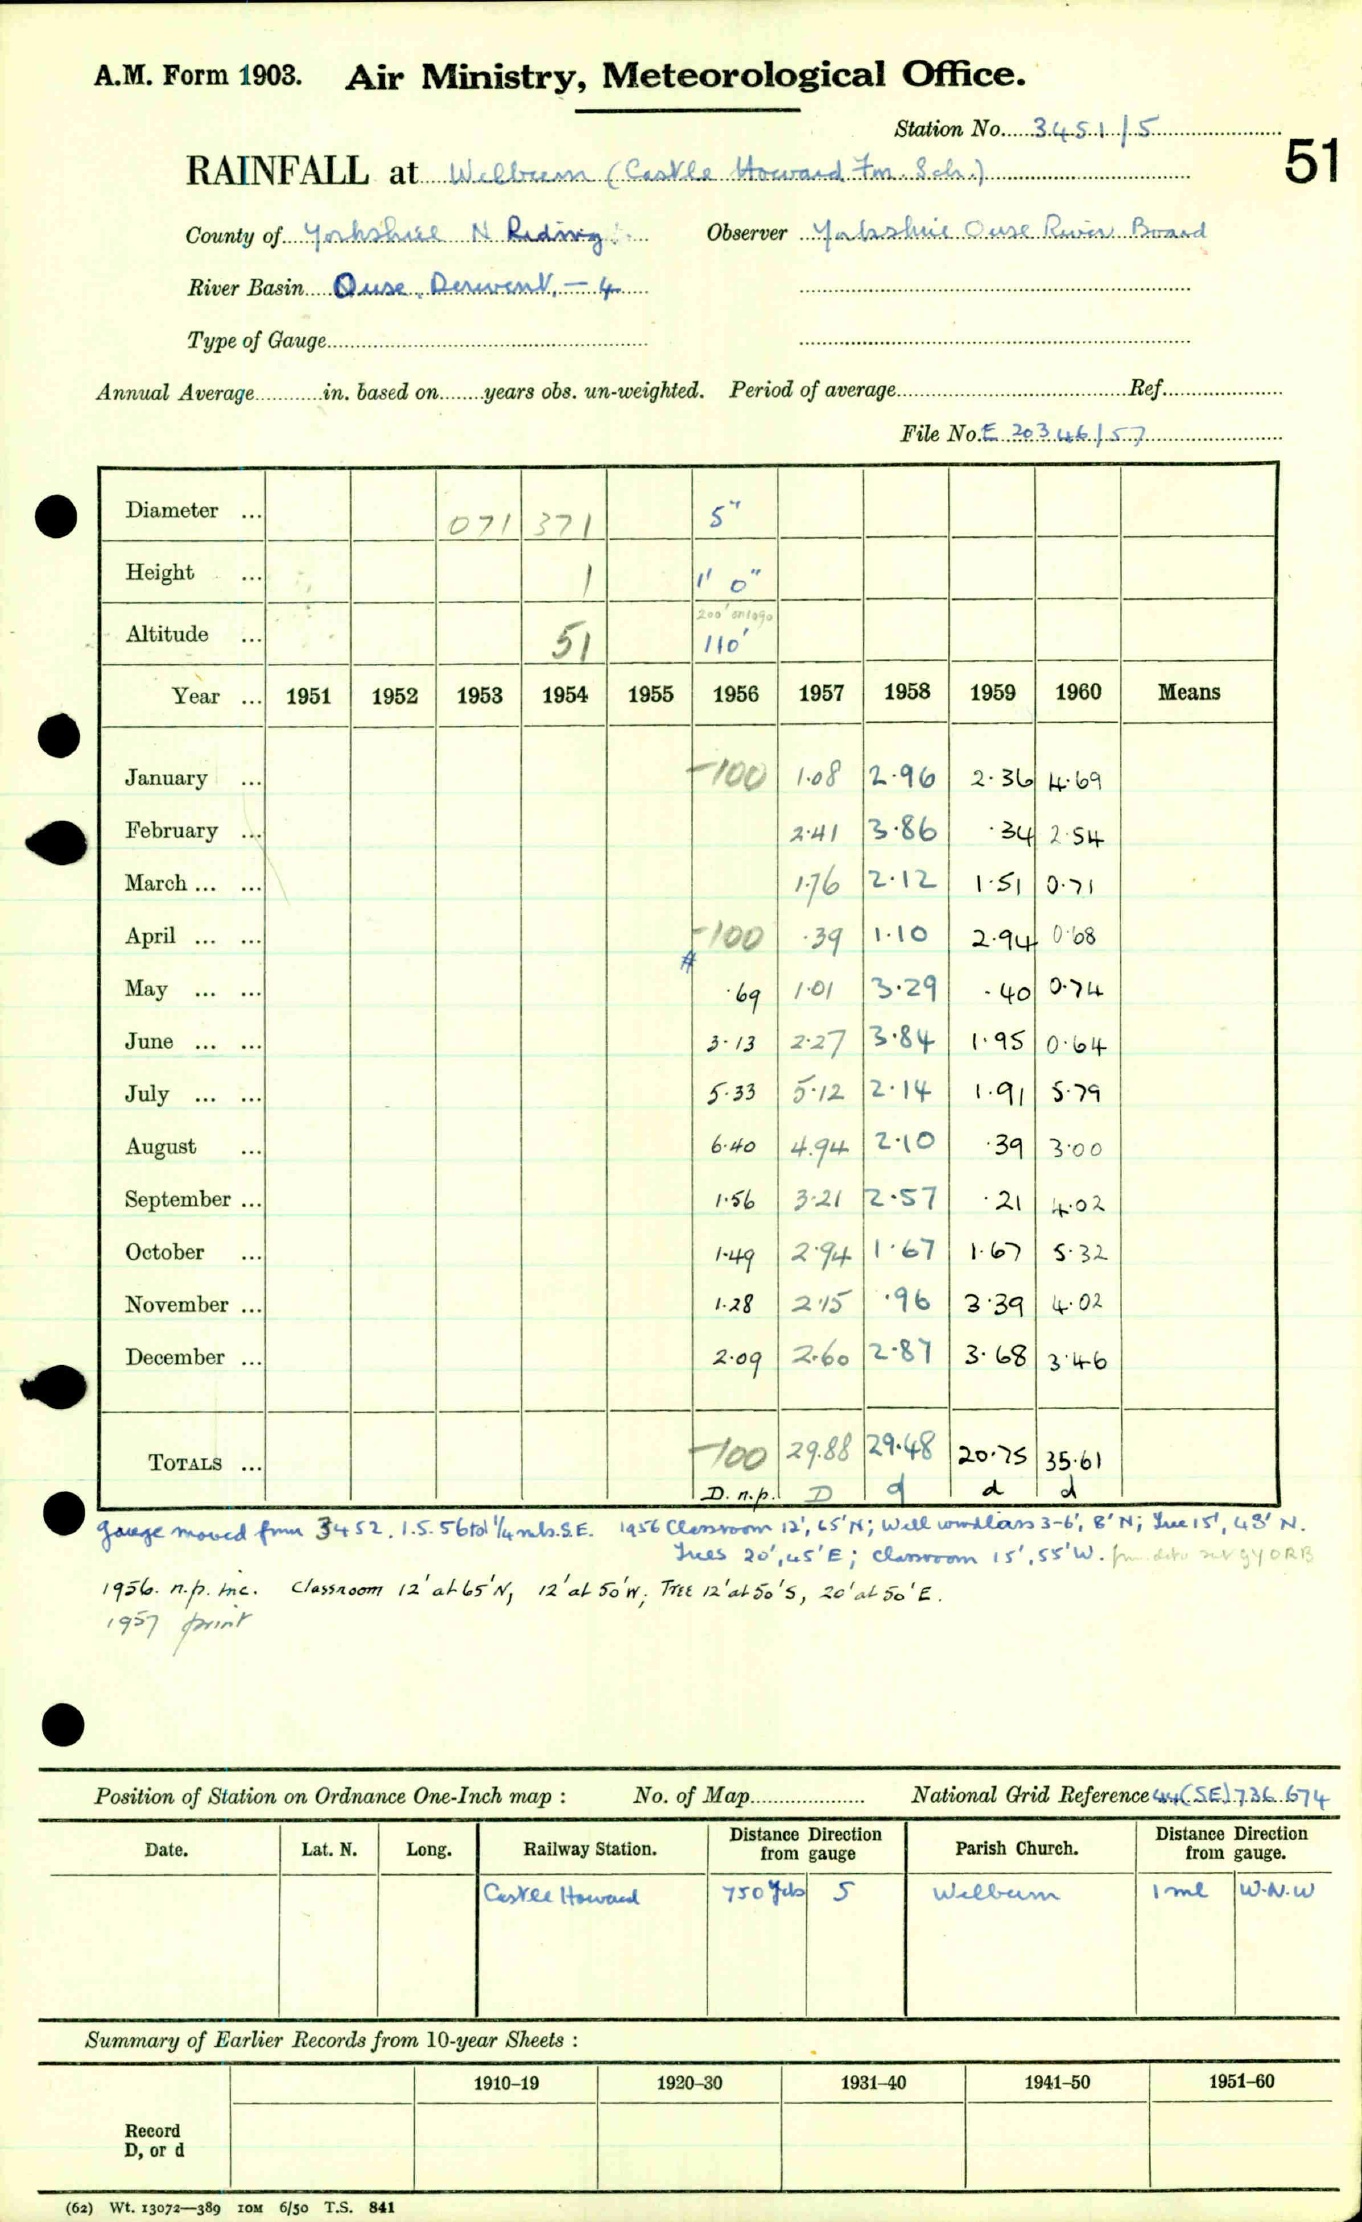 A.M. Form 1903. Air Ministry, Meteorological Office.
Station No. 3451/5
51
RAINFALL at Welburn (Castle Howard Fm. Sch.)
County of Yorkshire N Riding Observer Yorkshire Ouse River Board
River Basin Ouse. Derwent. – 4
Type of Gauge
Annual Average in. based on years obs. un-weighted. Period of average Ref.
File No. E 20346/57
Diameter ... 071 371 5"
Height ... 1 1' 0"
200' on 1090
Altitude ... 51 110'
Year ... 1951 1952 1953 1954 1955 1956 1957 1958 1959 1960 Means
January ... -100 1.08 2.96 2.36 4.69
February ... 2.41 3.86 .34 2.54
March ... ... 1.76 2.12 1.51 0.71
April ... ... -100 .39 1.10 2.94 0.68
#
May ... ... .69 1.01 3.29 .40 0.74
June ... ... 3.13 2.27 3.84 1.95 0.64
July ... ... 5.33 5.12 2.14 1.91 5.79
August ... 6.40 4.94 2.10 .39 3.00
September ... 1.56 3.21 2.57 .21 4.02
October ... 1.49 2.94 1.67 1.67 5.32
November ... 1.28 2.15 .96 3.39 4.02
December ... 2.09 2.60 2.87 3.68 3.46
TOTALS ... -100 29.88 29.48 20.75 35.61
D. n.p. D d d d
gauge moved from 3452. 1.5.56 1/4 mls. S.E. 1956 Classroom 12', 65'N; Well windlass 3-6', 8'N; Tree 15', 48'N.
Trees 20', 45'E; Classroom 15', 55'W.
1956. n.p. inc. Classroom 12' at 65'N, 12' at 50'W; Tree 12' at 50'S, 20' at 50'E.
1957 print
Position of Station on Ordnance One-Inch map : No. of Map National Grid Reference 44(SE)736 674
Date. Lat. N. Long. Railway Station. Distance Direction from gauge Parish Church. Distance Direction from gauge.
Castle Howard 750 Yds S Welburn 1 ml W.N.W
Summary of Earlier Records from 10-year Sheets :
1910–19 1920–30 1931–40 1941–50 1951–60
Record
D, or d
(62) Wt. 13072—389 10M 6/50 T.S. 841